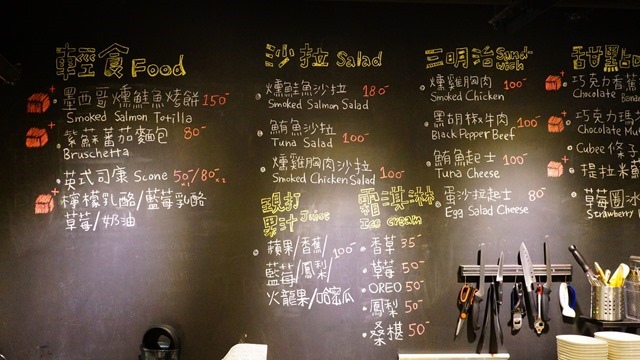 輕食 Food
墨西哥燻鮭魚烤餅 150
Smoked Salmon Totilla
紫蘇蕃茄麵包 80
Bruschetta
英式司康 Scone 50/80
檸檬乳酪/藍莓乳酪
草莓/奶油
沙拉 Salad
燻鮭魚沙拉 180
Smoked Salmon Salad
鮪魚沙拉
Tuna Salad 100
燻雞胸肉沙拉
Smoked Chicken Salad 100
現打
果汁 Juice
蘋果/香蕉/
藍莓/鳳梨/ 100
火龍果/哈密瓜
霜淇淋
Ice cream
香草 35
草莓 50
OREO 50
鳳梨 50
桑椹 50
三明治 Sandwich
燻雞胸肉 100
Smoked Chicken
黑胡椒牛肉
Black Pepper Beef 100
鮪魚起士 100
Tuna Cheese
蛋沙拉起士 80
Egg Salad Cheese
甜點
巧克力香蕉
Chocolate Bana
巧克力瑪
Chocolate Mu
Cubee 條子
提拉米
草莓圈冰
Strawberry